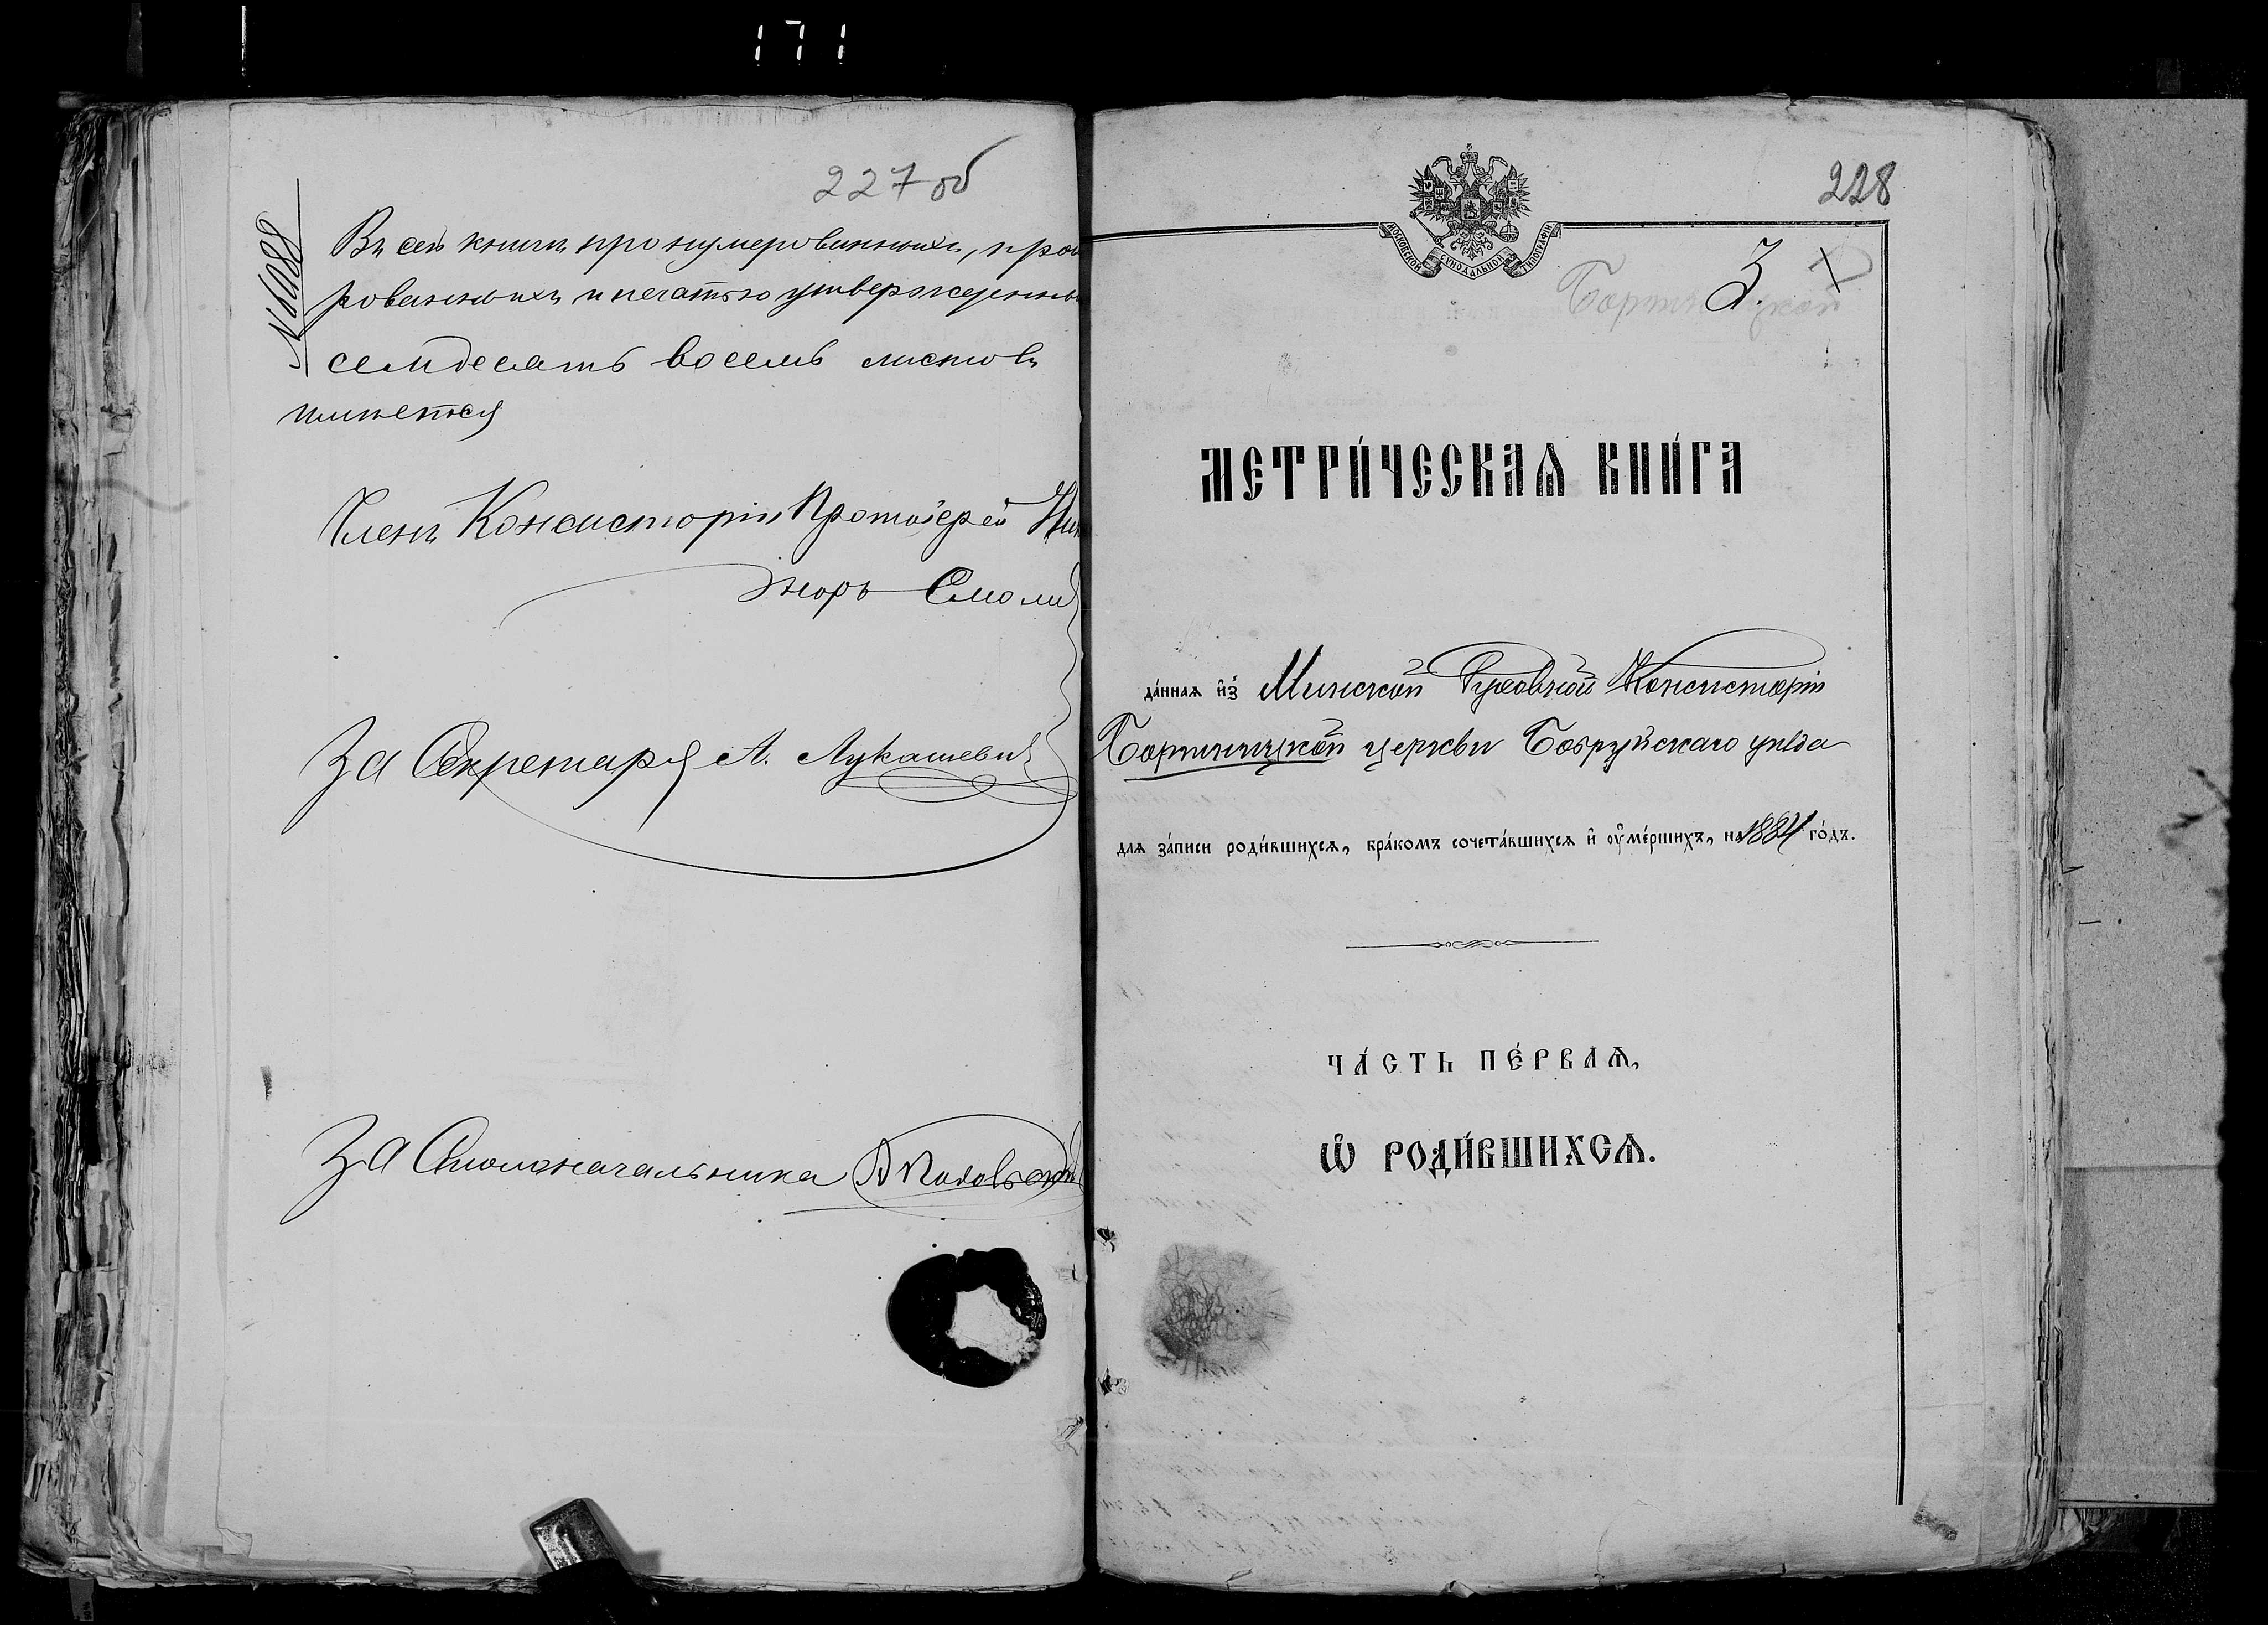 171
227 об
№ 11088
Въ сей книгѣ пронумерованныхъ, прош
рованныхъ и печатью утвержденны
семдесятъ восемь листовъ
имѣется
Членъ Консисторіи Протоіерей
Смоли
За Секретаря А. Лукашевич
За Столоначальника
228
МОСКОВСКОЙ СѴНОДАЛЬНОЙ ТИПОГРАФІИ
3.
МЕТРИ́ЧЕСКАѦ КНИ́ГА
да́ннаѧ и҆з̾ Минской Духовной Консисторіи
Бортницкой церкви Бобруйскаго уѣзда
длѧ за́писи роди́вшихсѧ, бра́комъ сочета́вшихсѧ и҆ ᲂу҆ме́ршихъ, на 1884 го́дъ.
ЧА́СТЬ ПЕ́РВАѦ,
Ѡ҆ РОДИ́ВШИХСѦ.